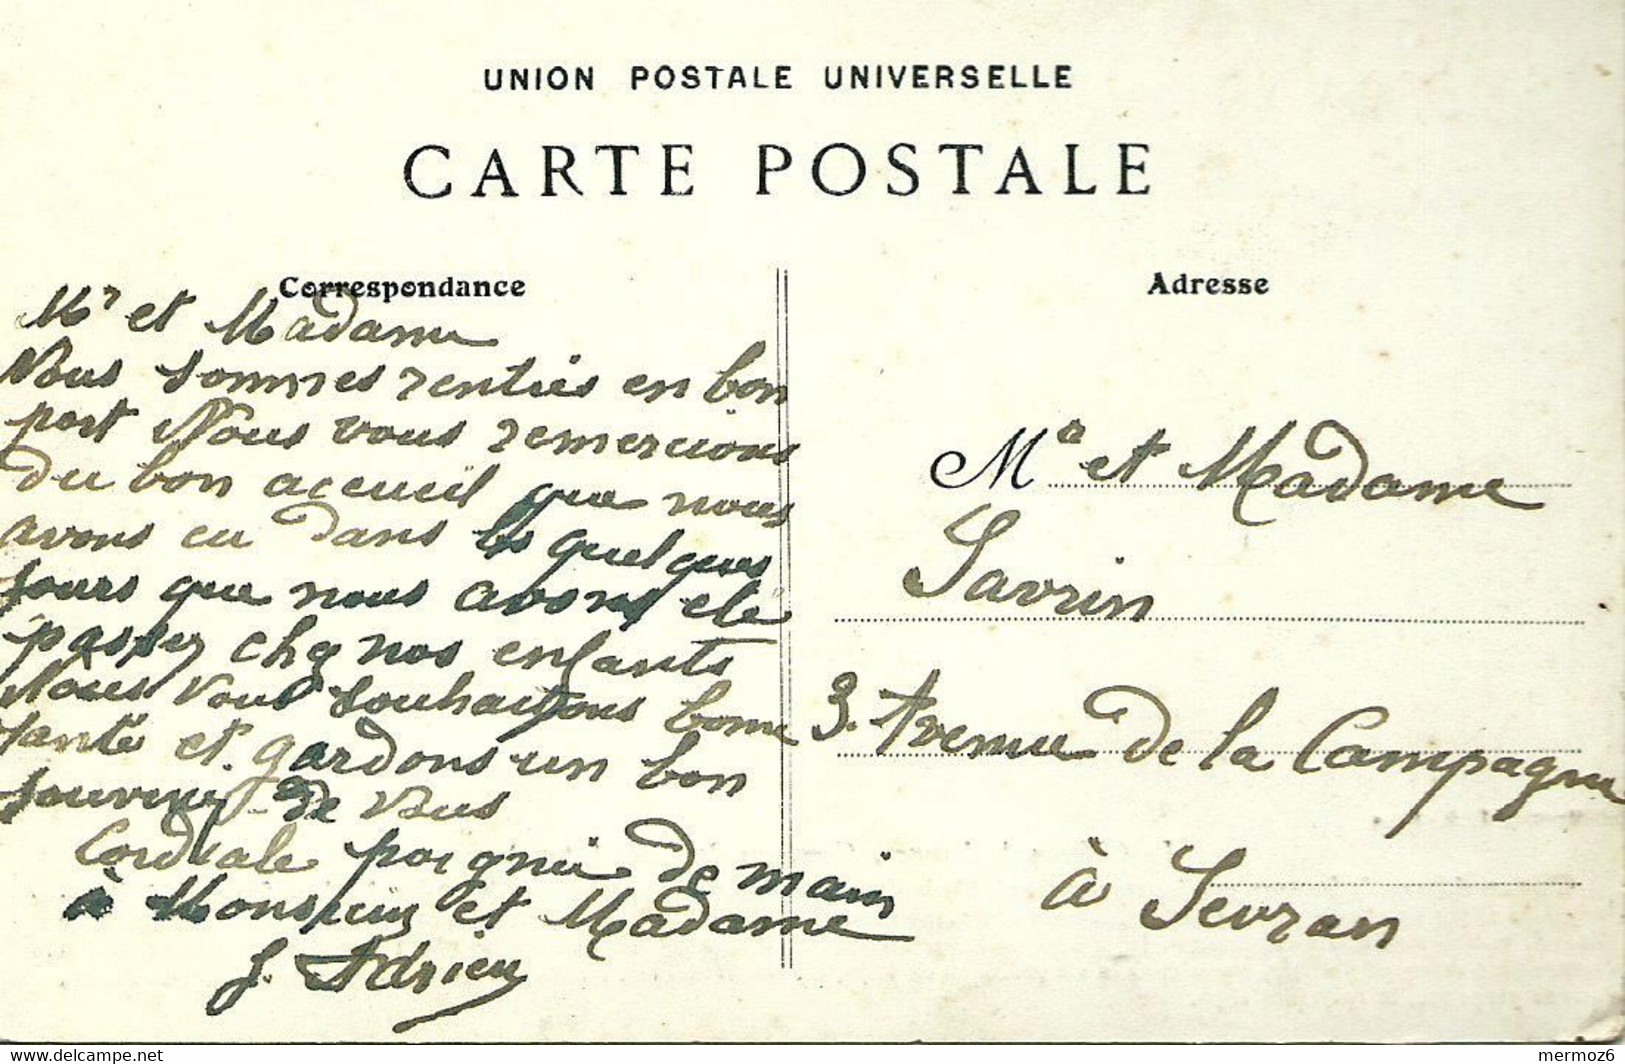 UNION POSTALE UNIVERSELLE
CARTE POSTALE
Correspondance
Mr et Madame
Nous sommes rentrés en bon
port Nous vous remercions
du bon accueil que nous
avons eu dans les quelques
jours que nous avons été
passer chez nos enfants
Nous vous souhaitons bonne
santé et gardons un bon
souvenir de vous
Cordiale poignée de main
à Monsieur et Madame
J. Adrien
Adresse
Mr et Madame
Savrin
3. Avenue de la Campagne
à Sevran
www.delcampe.net
mermoz6